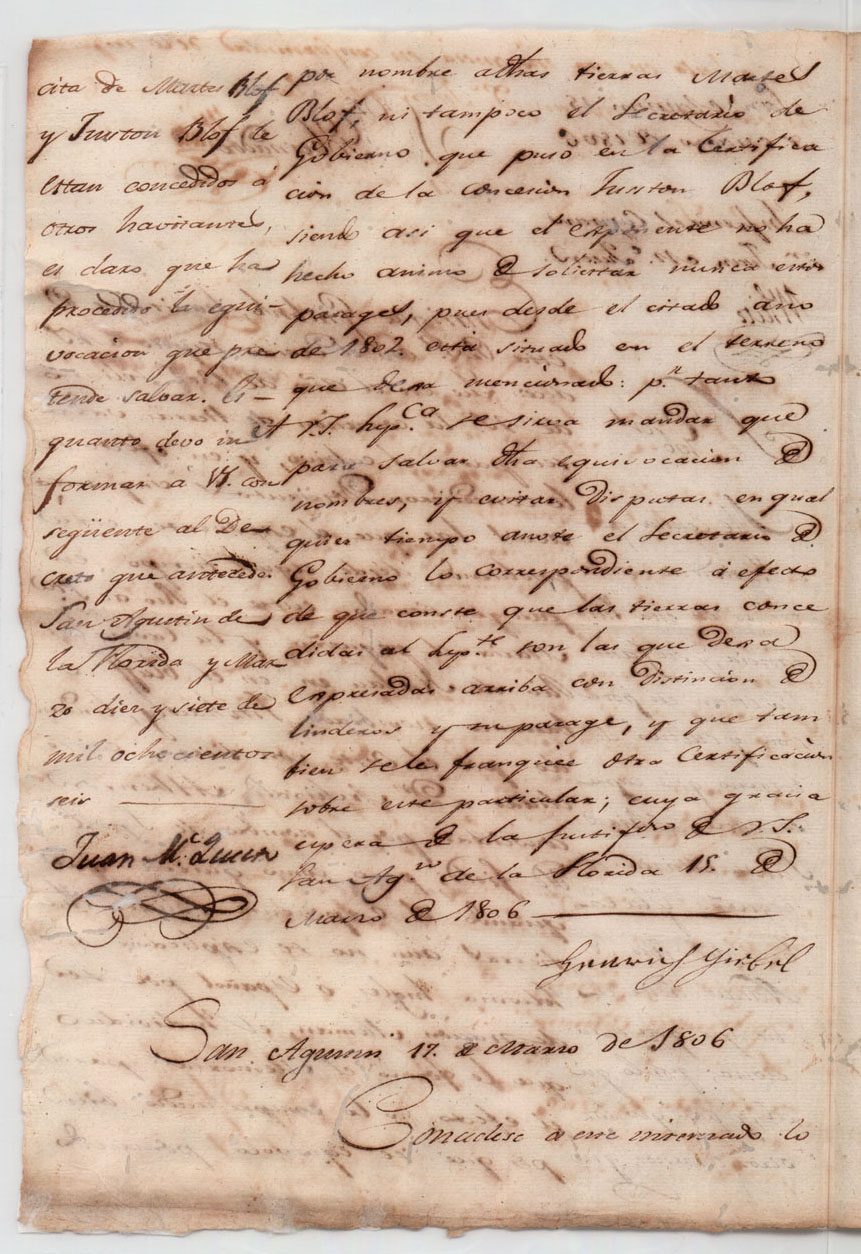 cita de Martes Blof
y Turston Blof de
estan concedidos á
otros havitantes,
es claro que ha
procedido la equi-
vocacion que pre
tende salvar. Es -
quanto devo in
formar á VS. con
següente al De
creto que antecede.
San Agustin de
la Florida y Mar
zo diez y siete de
mil ochocientos
seis
Juan Mc. Queen
por nombre a dhas tierras Martes
Blof, ni tampoco el Secretario de
Gobierno que puso en la Certifica
cion de la concesion Turston Blof,
siendo asi que el esponente no ha
hecho animo de solicitar nunca estos
parages, pues desde el citado año
de 1802. está situado en el terreno
que dexa mencionado: pr. tanto
A V.S. hpca. se sirva mandar que
para salvar dha equivocacion de
nombres, y evitar disputas en qual
quier tiempo anote el Secretario de
Gobierno lo correspondiente á efecto
de que conste que las tierras conce
didas al hpte. son las que dexa
espresadas arriba con distincion de
linderos y su parage, y que tam
bien se le franquée otra Certificacion
sobre este particular; cuya gracia
espera de la justif.on de V.S.
San Agn. de la Florida 15. de
Marzo de 1806
Henrich
San Agustin 17. de Marzo de 1806
Concedese a este interesado lo